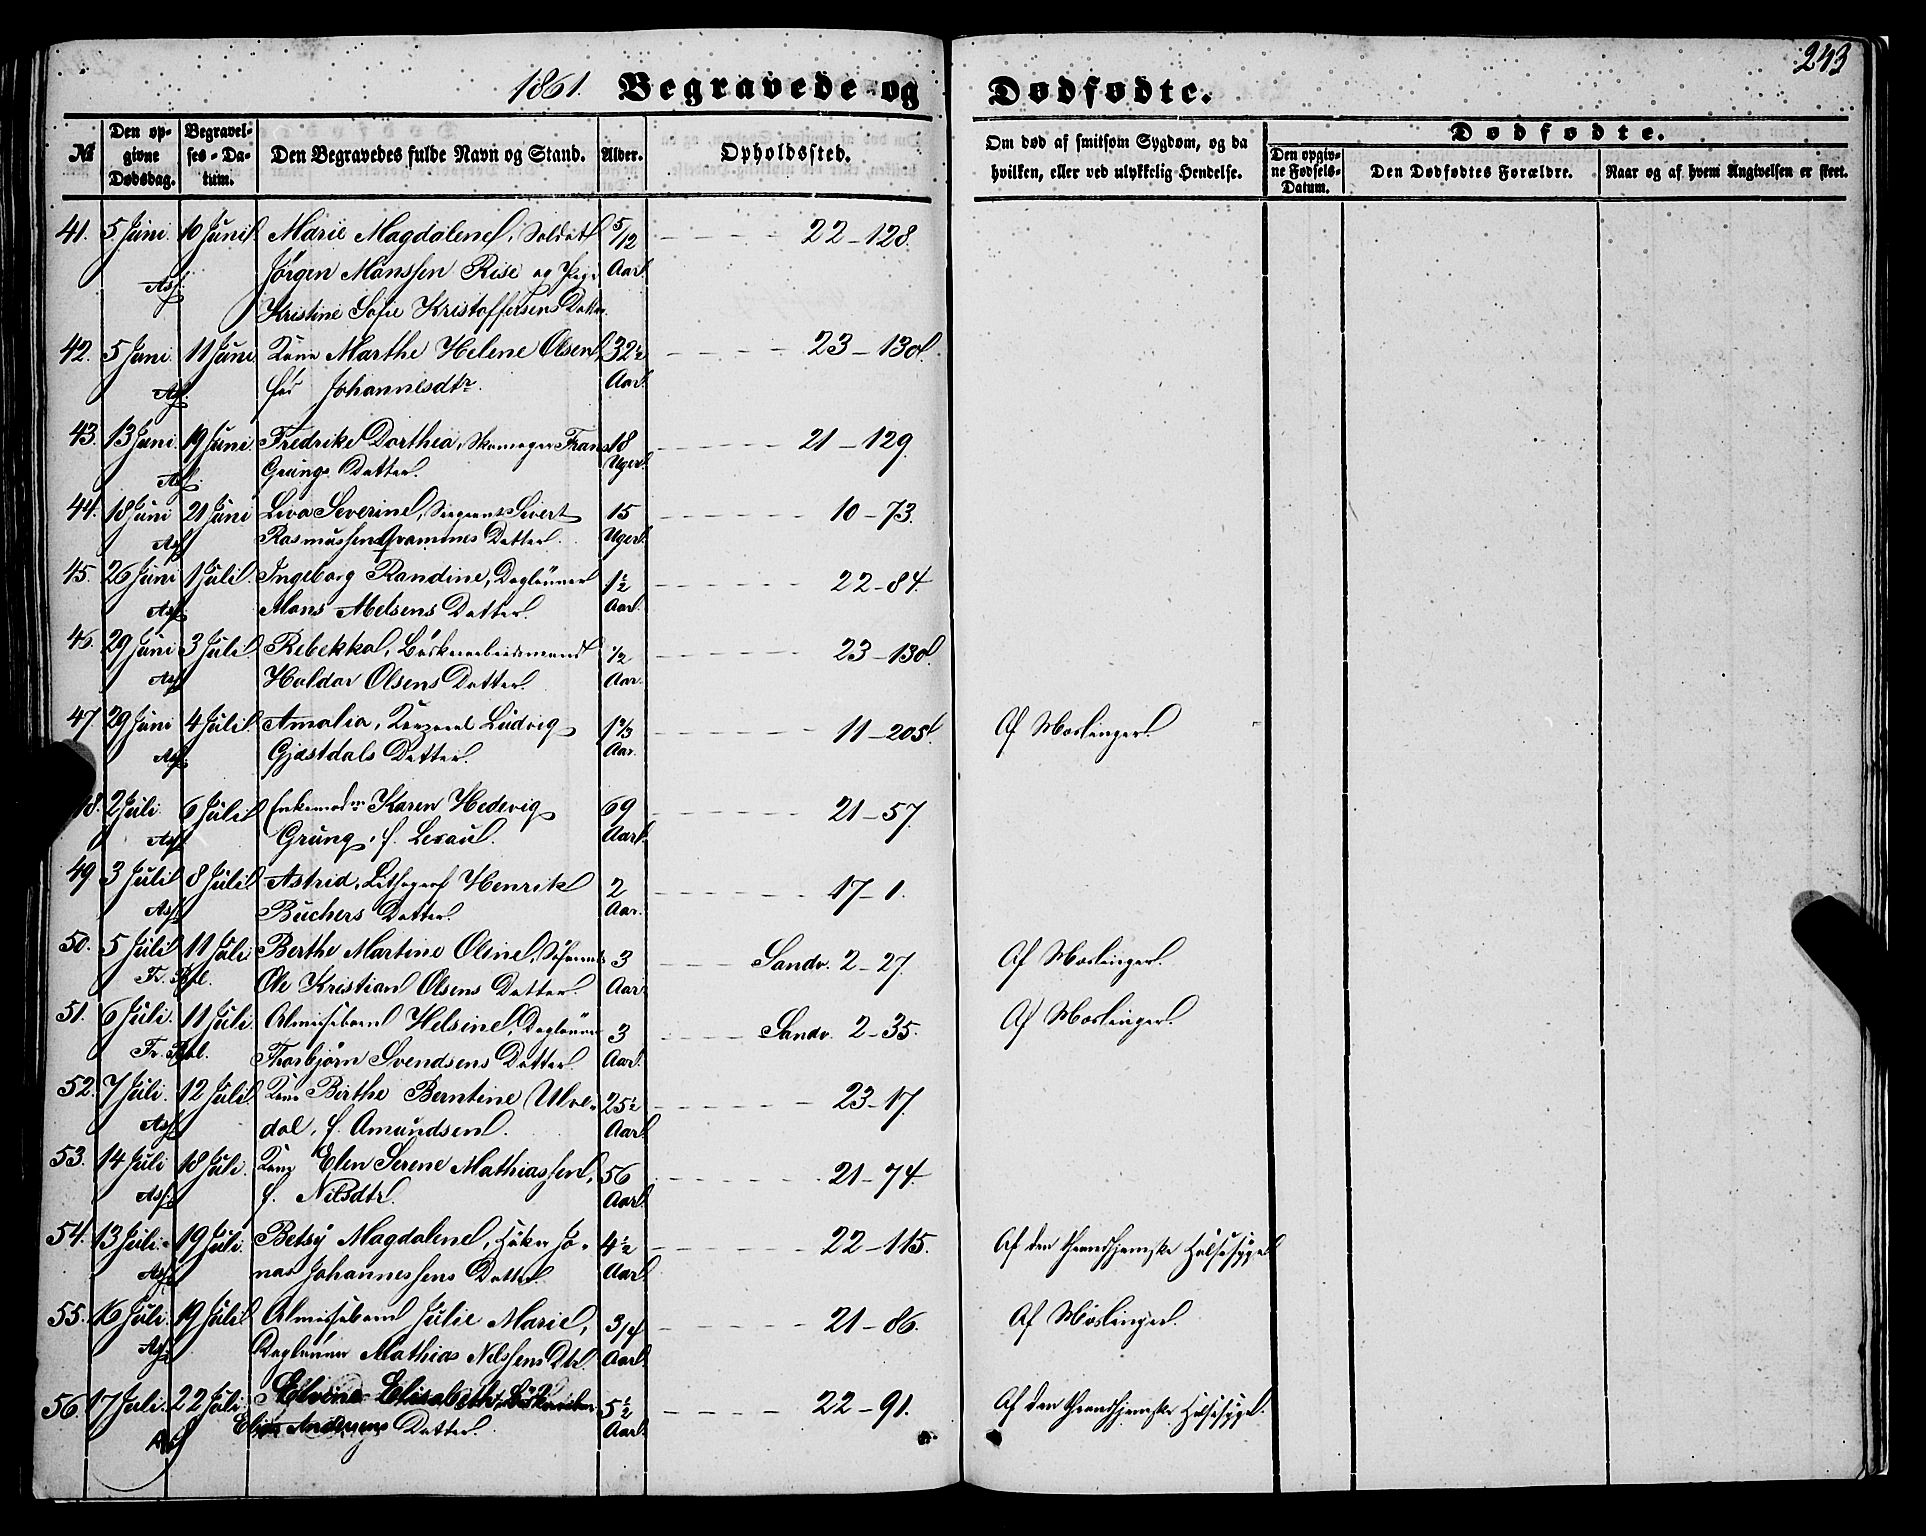 243
1861. Begravede og Dødfødte.
№ Den opgivne Dødsdag. Begravelses-Datum. Den Begravedes fulde Navn og Stand. Alder. Opholdssted. Om død af smitsom Sygdom, og da hvilken, eller ved ulykkelig Hendelse. Dødfødte.
Den opgivne Fødsels-Datum. Den Dødfødtes Forældre. Naar og af hvem Angivelsen er skeet.
41. 5 Juni. 10 Juni. Marie Magdalene, Soldat 5/12 22-128.
Ass. Jørgen Monssen Rise og Pige Aar.
Kristine Sofie Kristoffersens Datter.
42. 5 Juni. 11 Juni Kone Marthe Helene Olsen, 32½ 23-130.
Ass. fød Johannesdtr. Aar.
43. 13 Juni. 19 Juni. Fredrike Dorthea, Skomager Frans 18 21-129.
Ass. Grungs Datter. Uger.
44. 18 Juni 21 Juni Lava Severine, Sergeant Sivert 15 10-73.
Ass. Rasmussen Qvammes Datter. Uger.
45. 26 Juni 1 Juli. Ingeborg Randine, Daglønner 1½ 22-84.
Ass. Mons Melsens Datter. Aar.
46. 29 Juni 3 Juli. Rebekka, ½ 23-130.
Ass. Haldor Olsens Datter. Aar.
47 29 Juni 4 Juli. Amalia, Ludvig 1⅔ 11-205. Af Mæslinger.
Ass. Gjøstdals Datter. Aar.
48. 2 Juli. 6 Juli Enkemad. Karen Hedevig 69 21-57.
Ass. Grung, f. Lexau. Aar.
49 3 Juli 8 Juli Astrid, Lithograf Henrik 2 17-1.
Ass. Buchers Datter. Aar.
50. 5 Juli 11 Juli Berthe Martine Oline, 3 Sandv. 2-27. Af Mæslinger.
Ole Kristian Olsens Datter. Aar
51. 6 Juli. 11 Juli. Almissebarn Helsine, Daglønner 3 Sandv. 2-35. Af Mæslinger.
Thorbjørn Svendsens Datter Aar.
52. 7 Juli. 12 Juli. Kone Birthe Berntine Ulve- 25½ 23-17.
Ass. dal, f. Amundsen. Aar.
53. 14 Juli 18 Juli. Kone Elen Serene Mathiassen, 56 21-74.
Ass. f. Nilsdtr. Aar.
54. 13 Juli. 19 Juli. Betsy Magdalene, Høker Jo- 4½ 22-115. Af den Throndhjemske Halssyge.
Ass. nas Johannessens Datter. Aar.
55. 16 Juli. 19 Juli Almissebarn Julie Marie, 3/4 21-86. Af Mæslinger.
Ass. Dagløner Mathias Nilssens Dtr. Aar.
56. 17 Juli. 22 Juli. Elvine Elisabeth, 5½ 22-91. Af den Throndhjemske Halssyge.
Datter. Aar.